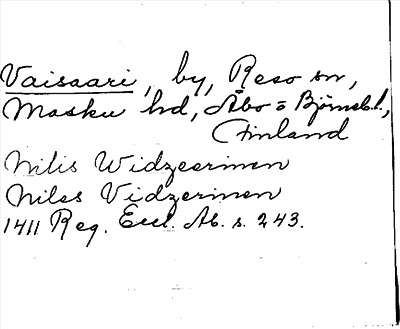 Vaisaari, by, Reso sn,
Masku hd, Åbo o Björneb. l.,
Finland
Nilis Widzcerimen
Niles Vidzerimen
1411 Reg. Eccl. Ab. s. 243.